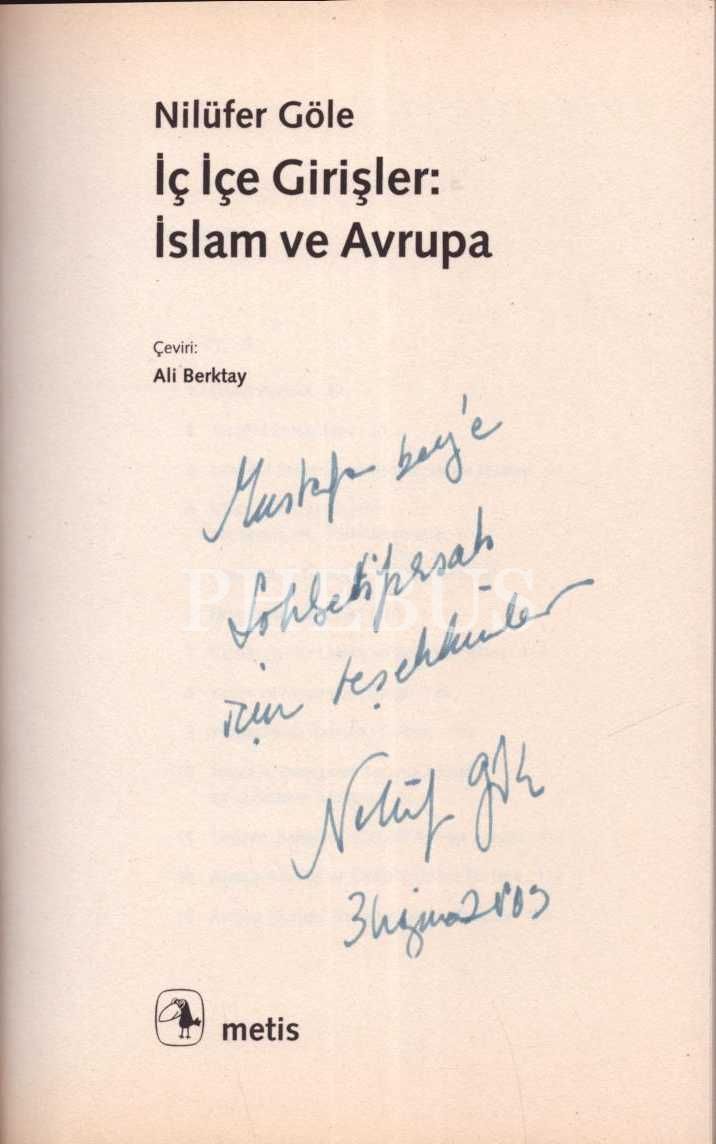 Nilüfer Göle
İç İçe Girişler:
İslam ve Avrupa
Çeviri:
Ali Berktay
Mustafa bey'e
Sohbet fırsatı
için teşekkürler
PHEBUS
Nilüfer Göle
metis